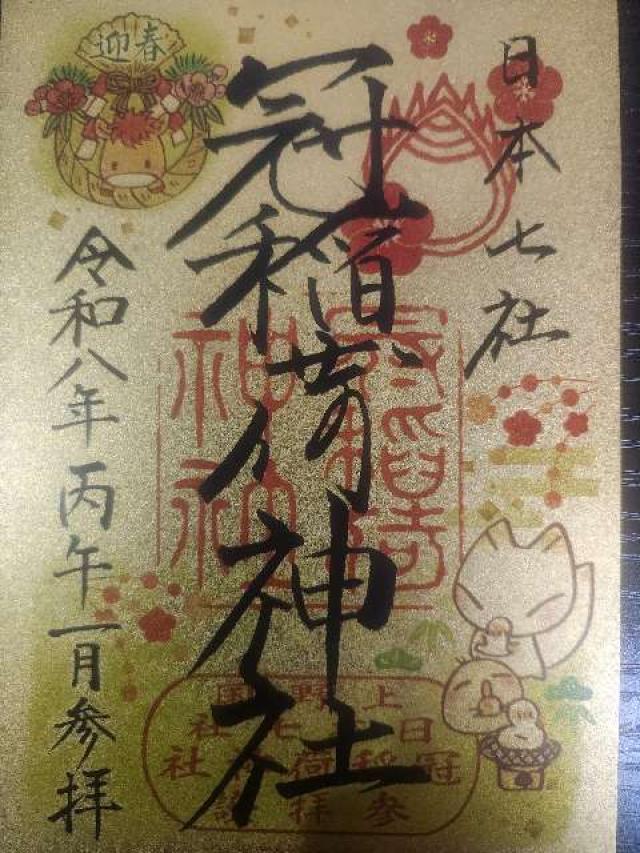 日本七社
冠稲荷神社
迎春
令和八年丙午一月参拝
上野国
日本七社
冠稲荷神社
参拝